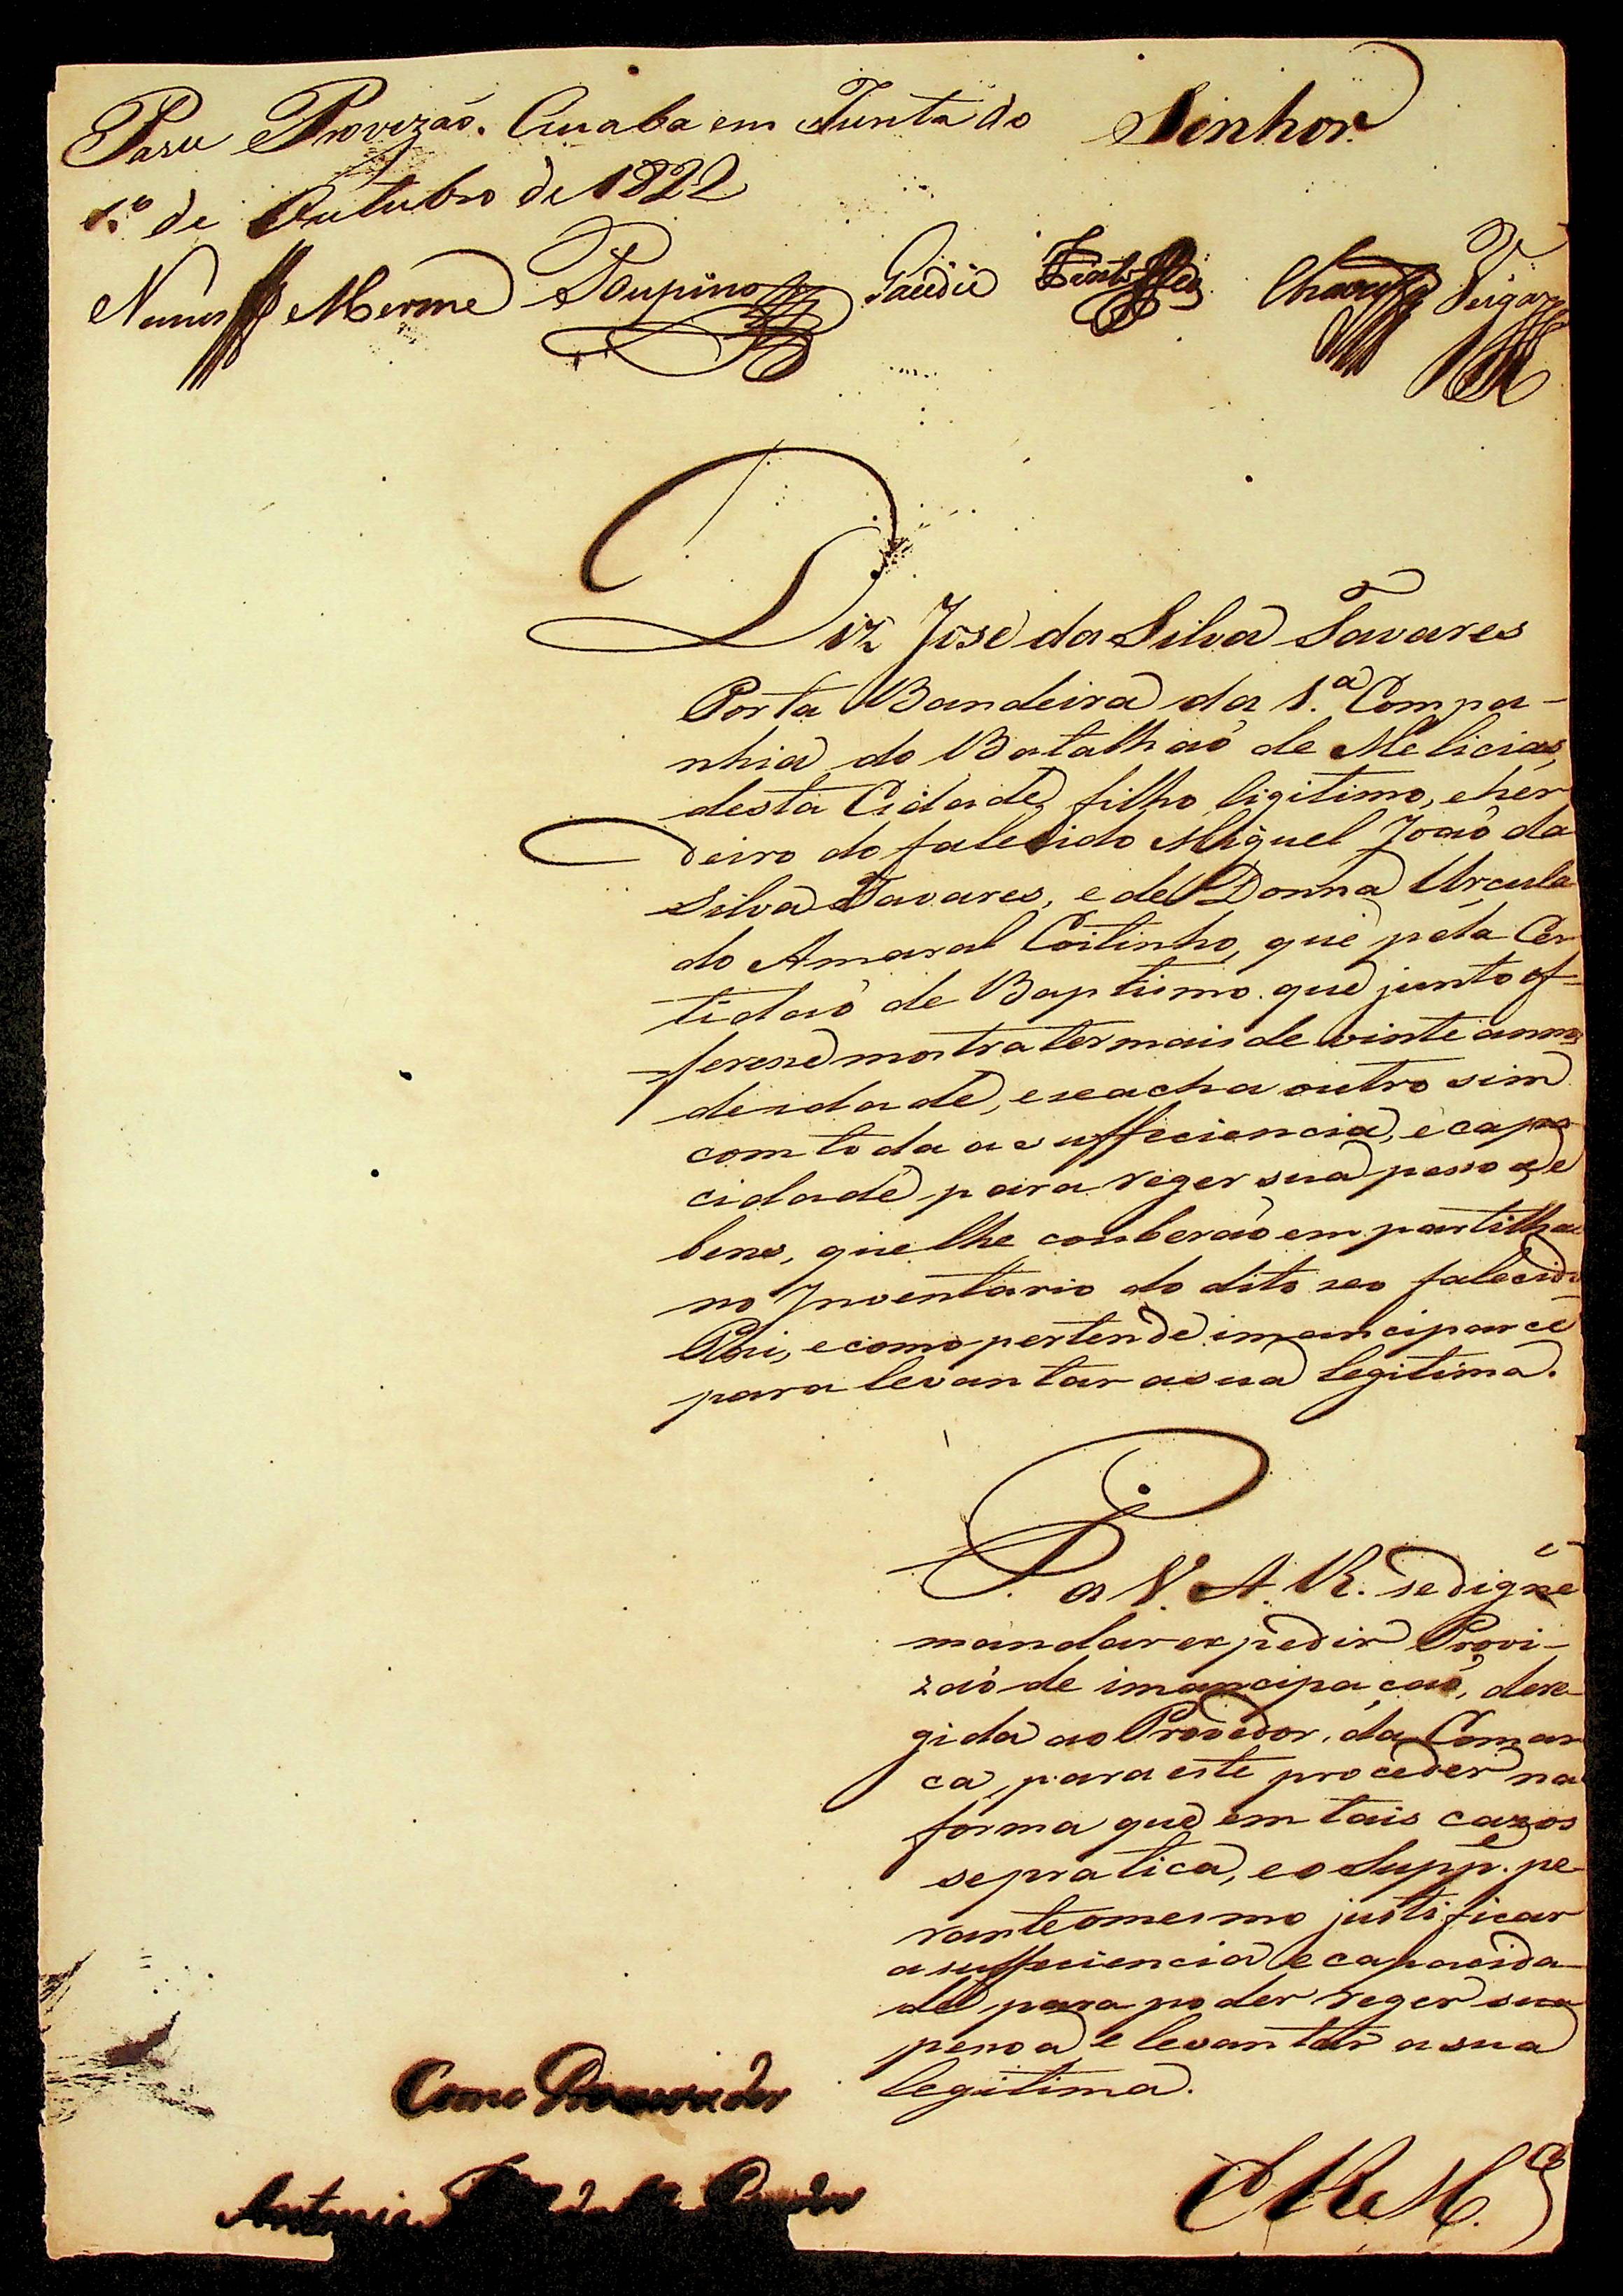 Passe Provizaõ. Cuiaba em Junta do
1.º de Outubro de 1822
Senhor
Nunes Merme Poupino Gaudie
Diz José da Silva Tavares
Porta Bandeira da 1.ª Compa-
nhia do Batalhaõ de Melicias,
desta Cidade, filho ligitimo, e her
deiro do falecido Miguel Joaõ da
Silva Tavares, e de Donna Urçula
do Amaral Coitinho, que pela Cer
tidaõ de Baptismo que junto of=
ferece mostra ter mais de vinte annos
de idade, e se acha outro sim
com toda a suffeciencia, e capa
cidade para reger sua pessoa, e
bens, que lhe couberaõ em partilhas
no Inventario do dito seo falecido
Pai, e como pertende imancipar ce
para levantar a sua legitima.
P. a V. A. R. se digne
mandar expedir Provi-
zaõ de imancipaçaõ, dere-
gida ao Provedor da Comar
ca, para este proceder na
forma que em tais cazos
se pratica, e o Supp.e pe
rante o mesmo justificar
a suffeciencia e capacida-
de para poder reger sua
pessoa e levantar a sua
legitima.
Como Procurador
Antonio
E R M.ce